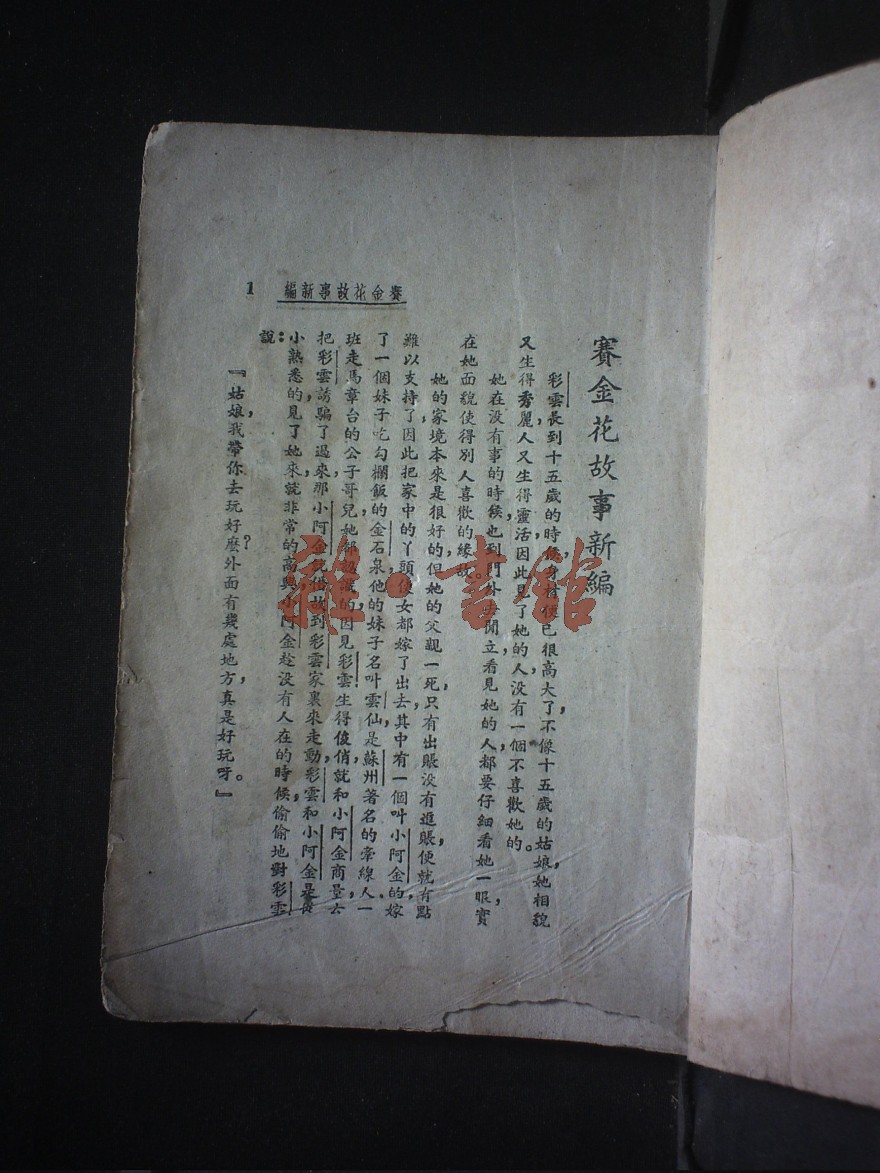 賽金花故事新編
彩雲長到十五歲的時候，身材便已很高大了，不像十五歲的姑娘，她相貌
又生得秀麗，人又生得靈活，因此見了她的人，没有一個不喜歡她的。
她在没有事的時候，也到門外去閒立，看見她的人，都要仔細看她一眼，實
在她面貌使得別人喜歡的緣故。
她的家境本來是很好的，但她的父親一死，只有出賬没有進賬，便就有點
難以支持了，因此把家中的丫頭使女都嫁了出去，其中有一個叫小阿金的，嫁
了一個妹子吃勾欄飯的金石泉，他的妹子名叫雲仙，是蘇州著名的牽線人，一
班走馬章台的公子哥兒，她都認識的，因見彩雲生得俊俏，就和小阿金商量去
把彩雲誘騙了過來，那小阿金就借故到彩雲家裏來走動，彩雲和小阿金是從
小熟悉的，見了她來，就非常的高興，小阿金趁没有人在的時候，偷偷地對彩雲
說：
『姑娘，我帶你去玩好麼？外面有幾處地方，真是好玩呀。』
賽金花故事新編
1
雜·書館